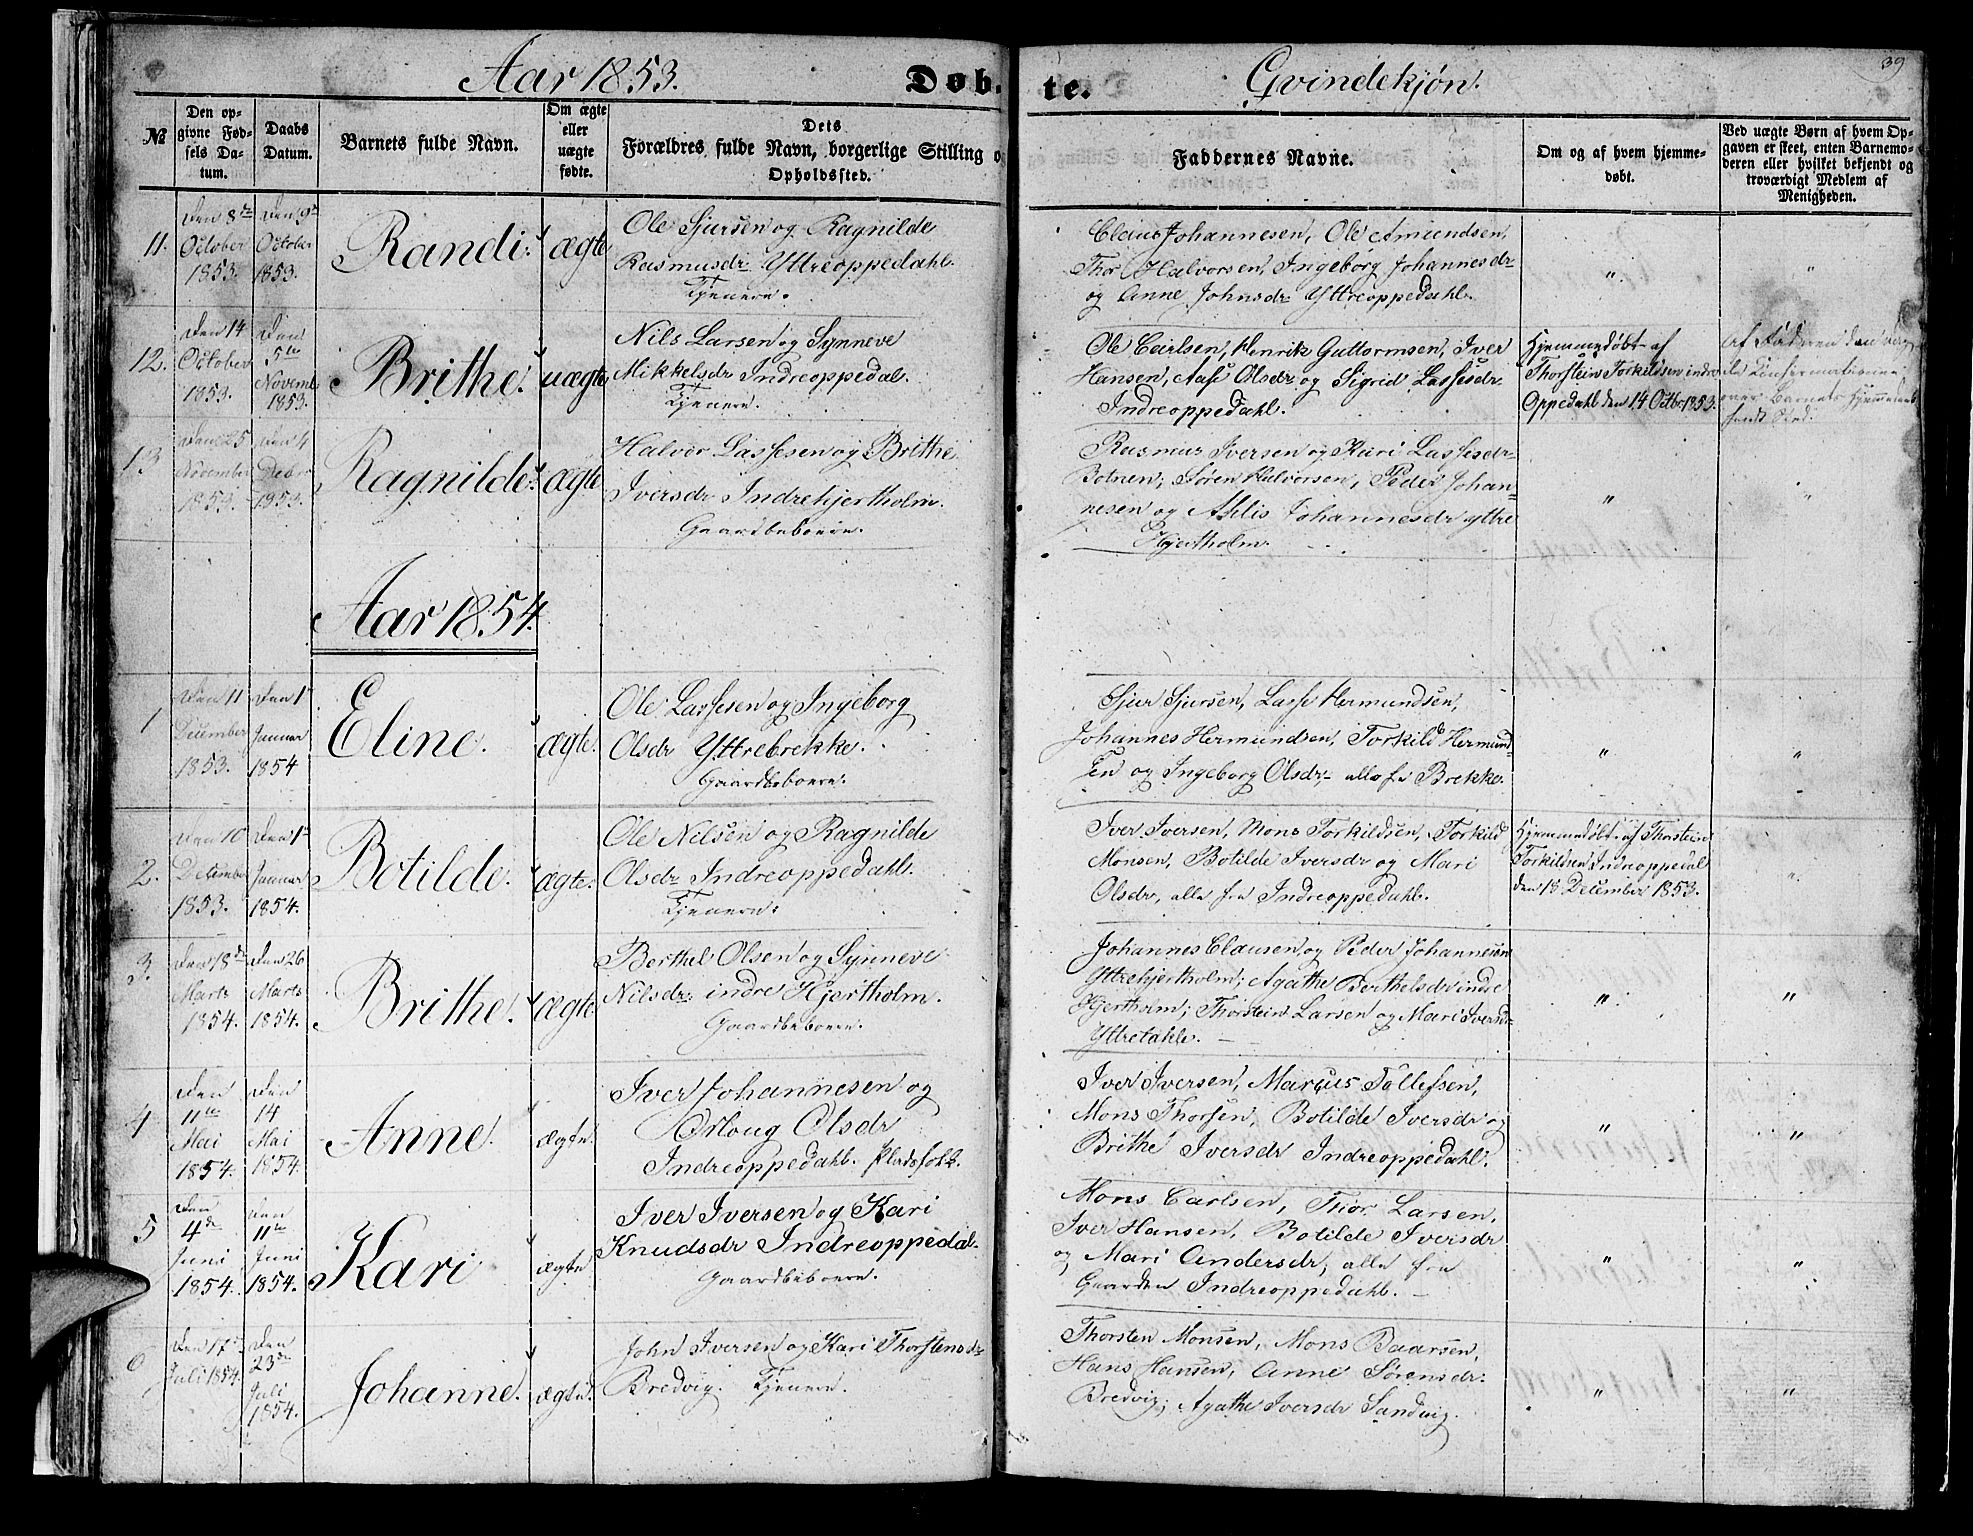 Aar 1853. Døb-
te. Qvindekjøn.
39
№
Den op-
givne Fød-
sels Da-
tum.
Daabs
Datum.
Barnets fulde Navn.
Om ægte
eller
uægte
fødte.
Dets
Forældres fulde Navn, borgerlige Stilling o
Opholdssted.
Faddernes Navne.
Om og af hvem hjemme-
døbt.
Ved uægte Børn af hvem Op-
gaven er skeet, enten Barnemo-
deren eller hvilket bekjendt og
troværdigt Medlem af
Menigheden.
11.
Den 8de
October
1853.
Den 9de
October
1853.
Randi.
ægte
Ole Sjursen og Ragnilde
Rasmusdr Yttreoppedahl.
Tjenere.
Claus Johannesen, Ole Amundsen,
Thor Halvorsen, Ingeborg Johannesdr
og Anne Johnsdr Yttreoppedahl.
"
"
12.
Den 14
October
1853.
Den
5te
Novemb
1853.
Brithe.
uægte
Nils Larsen og Synneve
Mikkelsdr Indreoppedal.
Tjenere.
Ole Carlsen, Henrik Guttormsen, Iver
Hansen, Aase Olsdr og Sigrid Lassesdr
Indreoppedahl.
Hjemmedøbt af
Thorstein Torkildsen indre
Oppedahl den 14 Octbr 1853.
Af Faderen den
13
Den 25
November
1853.
Den 4
Decbr
1853.
Ragnilde.
ægte
Halvor Lassesen og Brithe
Iversdr Indrehjertholm.
Gaardbeboere.
Rasmus Iversen og Kari Lassesdr
Botnen; Søren Halvorsen, Peder Johan=
nesen og Ahlis Johannesdr yttre
Hjertholm.
"
"
Aar 1854.
1
Den 11
December
1853.
Den 1
Januar
1854
Eline.
ægte.
Ole Lassesen og Ingeborg
Olsdr Yttrebrekke.
Gaardbeboere.
Sjur Sjursen, Lasse Hermundsen,
Johannes Hermundsen, Torkild Hermund=
sen og Ingeborg Olsdr alle fra Brekke.
"
"
2.
Den 10
December
1853.
Den 1
Januar
1854.
Botilde.
ægte.
Ole Nilsen og Ragnilde
Olsdr Indreoppedahl.
Tjenere.
Iver Iversen, Mons Torkildsen, Torkild
Monsen, Botilde Iversdr og Mari
Olsdr, alle fra Indreoppedahl.
Hjemmedøbt af Thorstein
Torkildsen Indreoppedal
den 18 December 1853.
"
3.
Den 18de
Marts
1854.
Den 26
Marts
1854.
Brithe.
ægte
Berthel Olsen og Synneve
Nilsdr indre Hjertholm.
Gaardbeboere.
Johannes Clausen og Peder Johannesen
Yttrehjertholm; Agathe Berthelsdr indre
Hjertholm; Thorstein Larsen og Mari Iversdr
Yttretahle.
"
"
4
Den
11te
Mai
1854.
Den
14
Mai
1854.
Anne.
ægte.
Iver Johannesen og
Ørloug Olsdr
Indreoppedahl. Pladsfolk.
Iver Iversen, Marcus Tollefsen,
Mons Thorsen, Botilde Iversdr og
Brithe Iversdr Indreoppedahl.
"
"
5
Den
4de
Juni
1854.
Den
11te
Juni
1854.
Kari
ægte
Iver Iversen og Kari
Knudsdr Indreoppedal.
Gaardbeboere.
Mons Carlsen, Thor Larsen,
Iver Hansen, Botilde Iversdr
og Mari Andersdr, alle fra
Gaarden Indreoppedahl.
"
"
6
Den 17de
Juli 1854.
Den
23de
Juli
1854.
Johanne.
ægte.
John Iversen og Kari Thorstensdr
Bredvig. Tjenere.
Thorsten Monsen, Mons Baarsen,
Hans Hansen, Anne Sørensdr
Bredvig; Agathe Iversdr Sandvig.
"
"